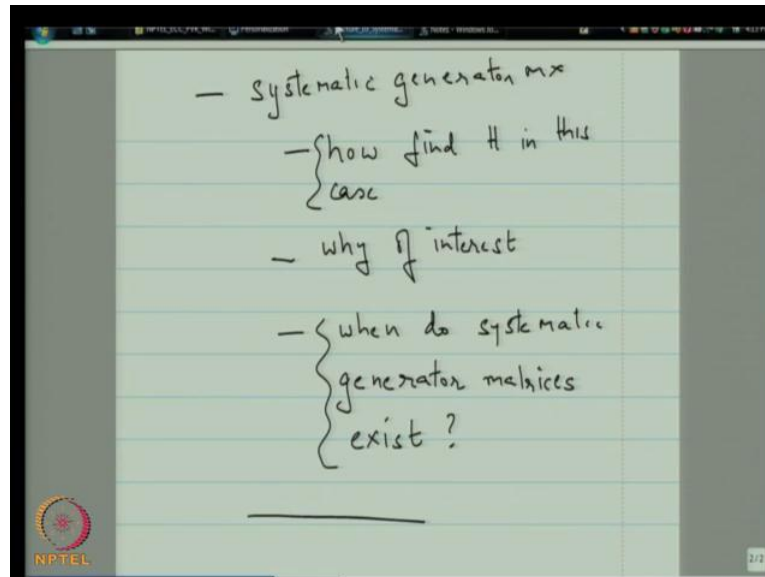 — systematic generator mx
— how find H in this
case
— why of interest
— when do systematic
generator matrices
exist ?
NPTEL
2/2